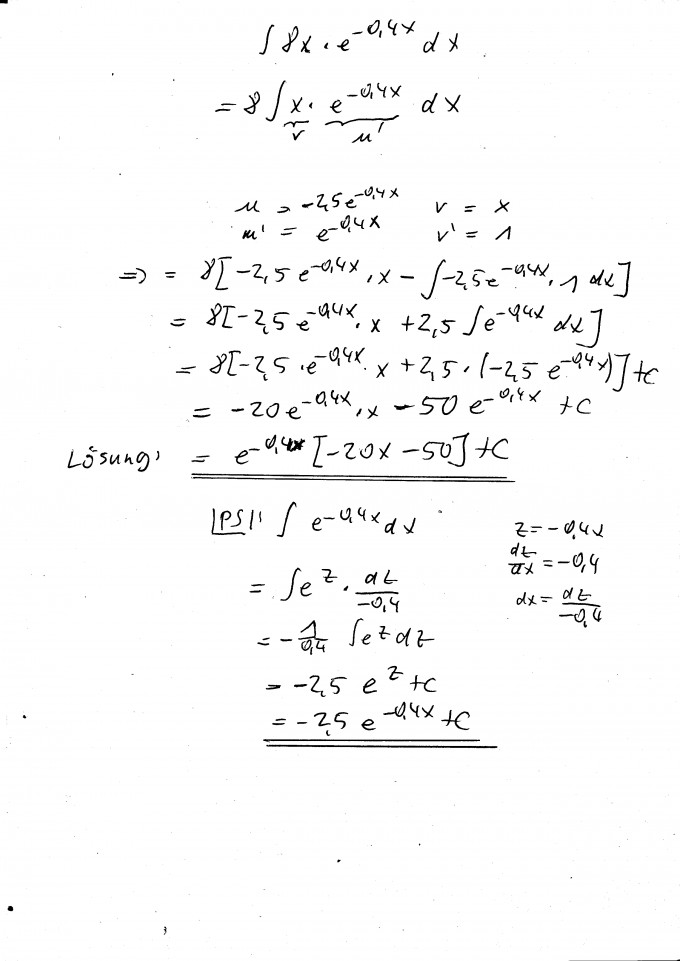 ∫ 8x · e^{-0,4x} dx
= 8 ∫ x · e^{-0,4x} dx
v u'
u = -2,5e^{-0,4x} v = x
u' = e^{-0,4x} v' = 1
=> = 8[-2,5 e^{-0,4x} · x - ∫ -2,5e^{-0,4x} · 1 dx]
= 8[-2,5 e^{-0,4x} · x + 2,5 ∫ e^{-0,4x} dx]
= 8[-2,5 · e^{-0,4x} · x + 2,5 · (-2,5 e^{-0,4x})] + C
= -20 e^{-0,4x} · x - 50 e^{-0,4x} + C
Lösung: = e^{-0,4x} [-20x - 50] + C
PS: ∫ e^{-0,4x} dx z = -0,4x
dz/dx = -0,4
= ∫ e^z · dz/-0,4 dx = dz/-0,4
= - 1/0,4 ∫ e^z dz
= -2,5 e^z + C
= -2,5 e^{-0,4x} + C